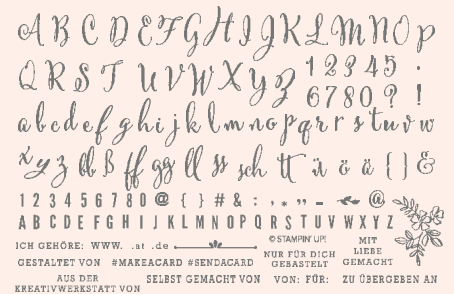 A B C D E F G H I J K L M N O P
Q R S T U V W X Y Z 1 2 3 4 5 .
6 7 8 0 ? !
a b c d e f g h i j k l m n o p q r s t u v w
x y z bb ß ff gg ll ss sch tt ü ö ä { } &
1 2 3 4 5 6 7 8 0 @ { } # & : , • „ – @
A B C D E F G H I J K L M N O P Q R S T U V W X Y Z
ICH GEHÖRE: WWW. .at .de
©STAMPIN' UP!
NUR FÜR DICH
GEBASTELT
MIT
LIEBE
GEMACHT
GESTALTET VON #MAKEACARD #SENDACARD
AUS DER
KREATIVWERKSTATT VON
SELBST GEMACHT VON VON: FÜR: ZU ÜBERGEBEN AN